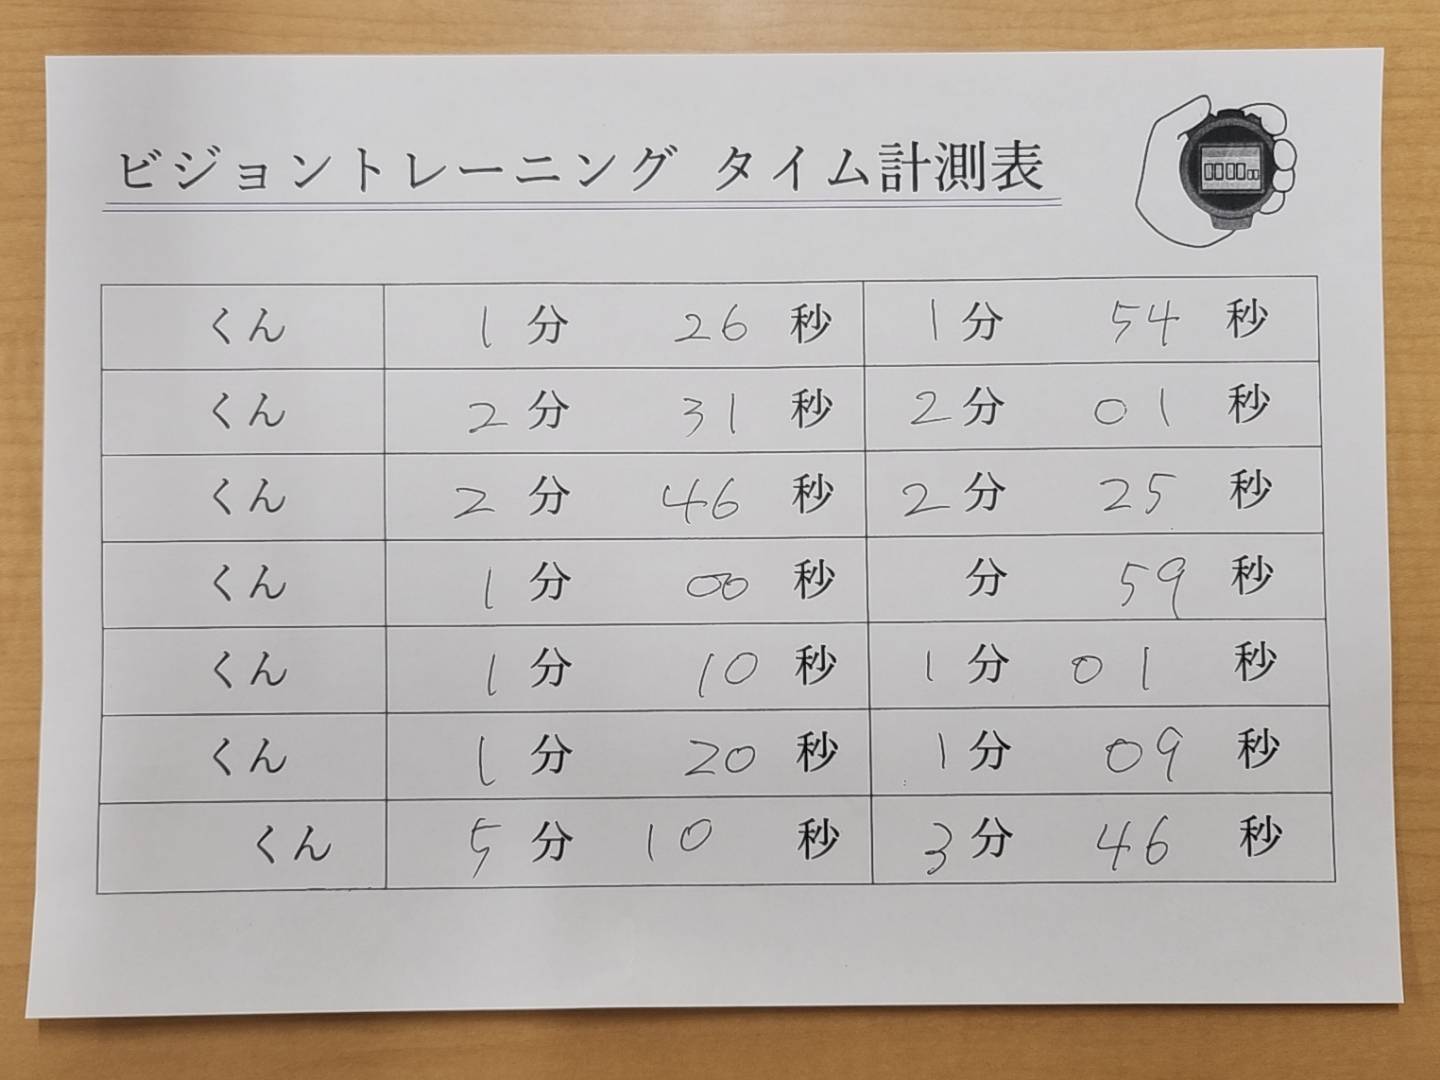 ビジョントレーニング タイム計測表
くん 1分 26秒 1分 54秒
くん 2分 31秒 2分 01秒
くん 2分 46秒 2分 25秒
くん 1分 00秒 分 59秒
くん 1分 10秒 1分 01秒
くん 1分 20秒 1分 09秒
くん 5分 10秒 3分 46秒